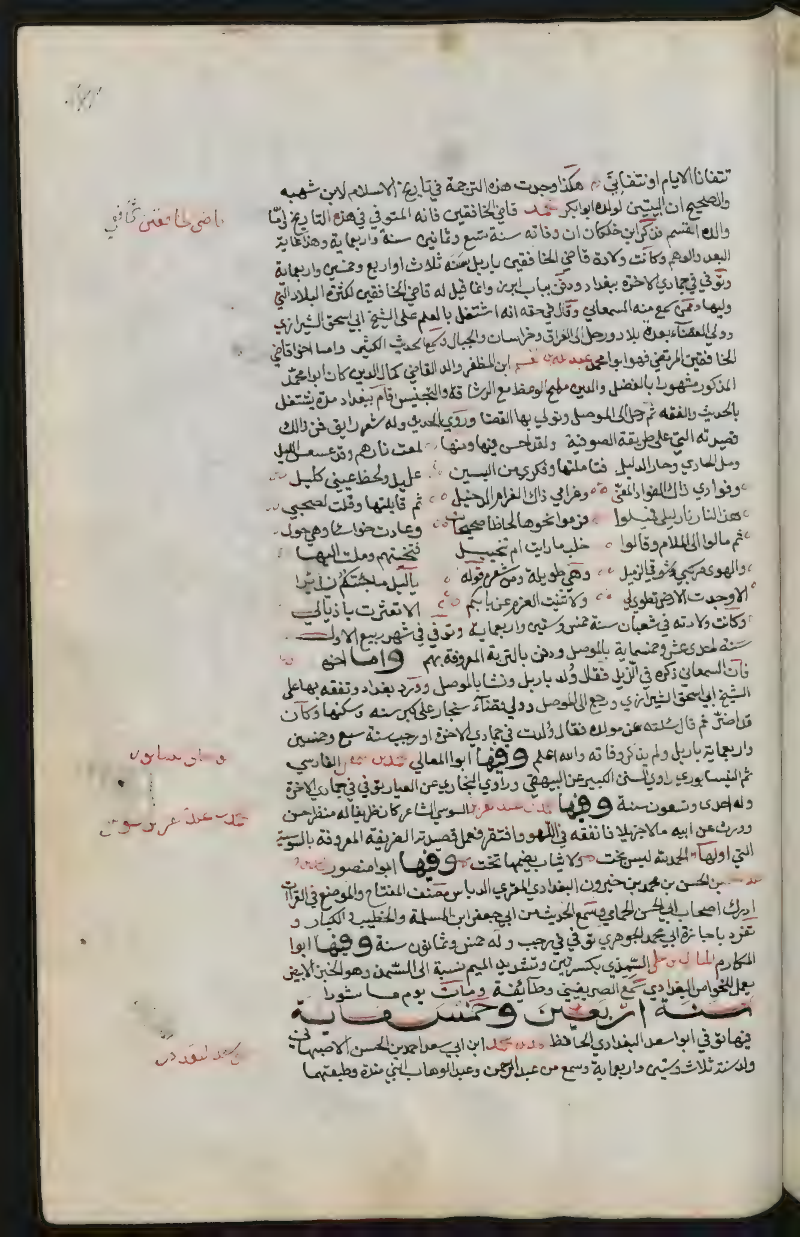 تتفانا الايام او نتفانى هكذا وجدت هذه الترجمة في تاريخ الاسلام لابن شهبه
والصحيح ان البيتين لولده ابو بكر محمد قاضي الخافقين فانه المتوفي في هذه التاريخ امّا
والده القسم فذكر ابن خلكان ان وفاته سنة تسع وثمانين سنة واربعماية وهذا غاية
البعد والوهم وكانت ولادة قاضي الخافقين باربل سنه ثلاث او اربع وخمسين واربعماية
وتوفي في جمادي الاخرة ببغداد ودفن بباب ابرز وانما قيل له قاضي الخافقين لكثرة البلاد التي
وليها وممن سمع منه السمعاني وقال في حقه انه اشتغل بالعلم على الشيخ ابي اسحق الشيرازي
وولي القضاء بعدة بلاد ورحل الى العراق وخراسان والجبال وسمع الحديث الكثير واما اخو قاضي
الخافقين المرتضي فهو ابو محمد عبد الله بن قسم ابن المظفر والد القاضي كمال الدين كان ابو محمد
المذكور مشهورا بالفضل والدين مليح الوعظ مع الرشاقة والتجنيس اقام ببغداد مدة يشتغل
بالحديث والفقه ثم رحل الى الموصل وتولي بها القضا وروي الحديث وله شعر رايق فمن ذالك
قصيدته التي على طريقة الصوفية ولقد احسن فيها ومنها لمعت نارهم وقد عسعس الليل
ومل الحادي وحار الدليل فتاملتها وفكري من البين عليل ولحظ عيني كليل
وفوادي ذاك الفواد المعنى وغرامي ذاك الغرام الدخيل ثم قابلتها وقلت لصحبي
هذه النار نار ليلى فميلوا فرموا نحوها لحاظا صحيحات وعادت خواسئا وهي حول
ثم مالوا الى الملام وقالوا خلب ما رايت ام تخييل فتجنبتهم وملت اليها
والهوى مركبي وشوقي الزميل وهي طويلة ومن شعره قوله ياليل ما جئتكم زائرا
الا وجدت الارض تطوي لي ولا ثنيت العزم عن بابكم الا تعثرت باذيالي
وكانت ولادته في شعبان سنة خمس وستين واربعماية وتوفي في شهر ربيع الاول
سنة احدي عشر وخمسماية بالموصل ودفن بالتربة المعروفة بهم واما اخوه
فان السمعاني ذكره في الذيل فقال ولد باربل ونشا بالموصل وورد بغداد وتفقه بها على
الشيخ ابي اسحق الشيرازي ورجع الى الموصل وولي بقضاء سنجار على كبر سنه وسكنها وكان
قد اضر ثم قال سئلته عن مولده فقال ولدت في جمادي الاخرة او رجب سنة سبع وخمسين
واربعماية باربل ولم يذكر وفاته والله اعلم وفيها ابو المعالي محمد بن الفارسي
ثم النيسابوري راوي السنن الكبير عن البيهقي وراوي البخاري عن العيار توفي في جمادي الاخرة
وله احدى وتسعون سنة وفيها السوسي الشاعر كان ظريفا له منظر حسن
وورث عن ابيه مالا جزيلا فانفقه في اللهو وافتقر فعمل قصيدته الظريفة المعروفة بالسوسية
التي اولها الحمد لله ليس بخت ولا ثياب يضمها تخت وفيها ابو منصور
بن الحسن بن محمد بن خيرون البغدادي المقري الدباس مصنف المفتاح والموضح في القراات
ادرك اصحاب ابي الحسن الحمامي وسمع الحديث من ابي جعفر ابن المسلمة والخطيب والكبار و
تفرد باجازة ابي محمد الجوهري توفي في رجب وله خمس وثمانون سنة وفيها ابو
المكارم بن علي السمذي بكسرتين وتشديد الميم نسبة الى السمذ وهو الخبز الابيض
يعمل للخواص البغدادي سمع الصريفيني وطائفة ومات يوم عاشورا
سنة اربعين وخمسماية
فيها توفي ابو سعد البغدادي الحافظ ابن ابي سعد احمد بن الحسن الاصبهاني
ولد سنة ثلاث وستين واربعماية وسمع من عبد الرحمن وعبد الوهاب ابني مندة وطبقتهما
قاضي خافقين